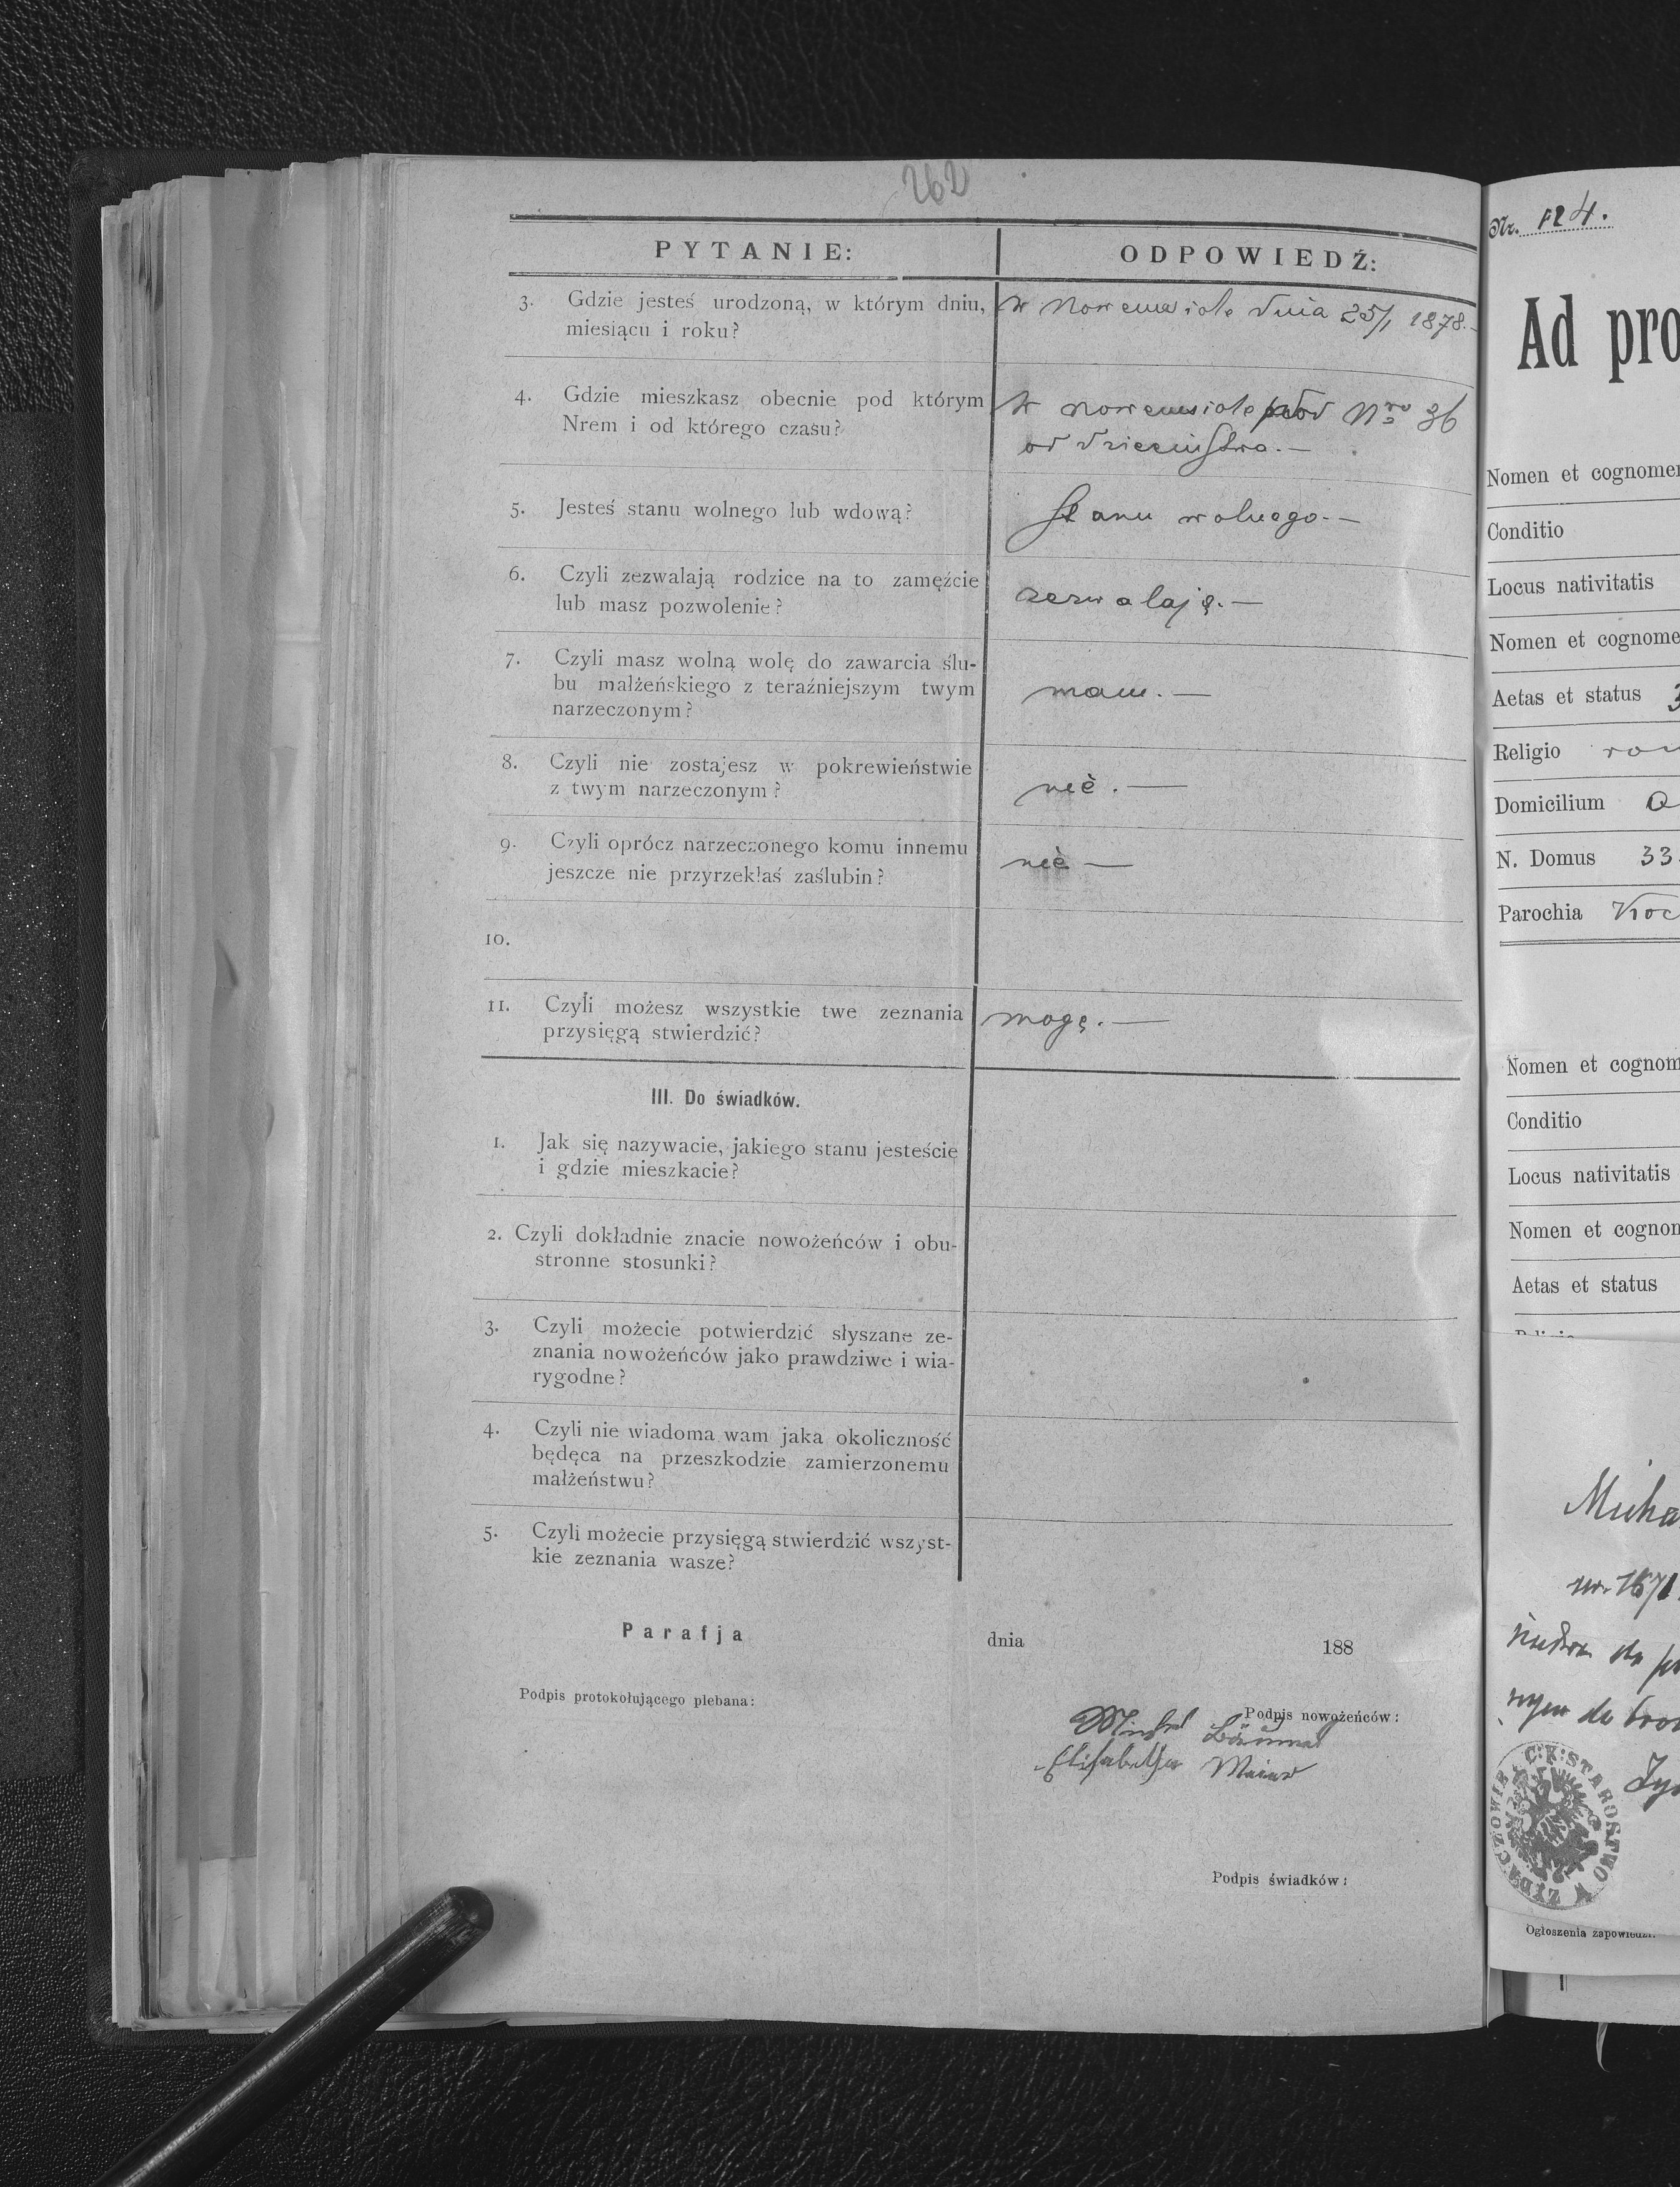 262
PYTANIE:
ODPOWIEDŹ:
3. Gdzie jesteś urodzoną, w którym dniu,
miesiącu i roku?
w Nowemsiole dnia 25/1 1878.-
4. Gdzie mieszkasz obecnie pod którym
Nrem i od którego czasu?
w nowemsiole pod Nro 36
od dzieciństwa.—
5. Jesteś stanu wolnego lub wdową?
Stanu wolnego.—
6. Czyli zezwalają rodzice na to zamęźcie
lub masz pozwolenie?
zezwalają.—
7. Czyli masz wolną wolę do zawarcia ślu-
bu małżeńskiego z teraźniejszym twym
narzeczonym?
mam.—
8. Czyli nie zostajesz w pokrewieństwie
z twym narzeczonym?
nie.—
9. Czyli oprócz narzeczonego komu innemu
jeszcze nie przyrzekłaś zaślubin?
nie —
10.
11. Czyli możesz wszystkie twe zeznania
przysięgą stwierdzić?
mogę.—
III. Do świadków.
1. Jak się nazywacie, jakiego stanu jesteście
i gdzie mieszkacie?
2. Czyli dokładnie znacie nowożeńców i obu-
stronne stosunki?
3. Czyli możecie potwierdzić słyszane ze-
znania nowożeńców jako prawdziwe i wia-
rygodne?
4. Czyli nie wiadoma wam jaka okoliczność
będęca na przeszkodzie zamierzonemu
małżeństwu?
5. Czyli możecie przysięgą stwierdzić wszyst-
kie zeznania wasze?
Parafja
dnia
188
Podpis protokołującego plebana:
Podpis nowożeńców:
Elisabetha
Podpis świadków:
Nr. 124.
Ad pro
Nomen et cognomen
Conditio
Locus nativitatis
Nomen et cognome
Aetas et status 3
Religio
Domicilium
N. Domus 33
Parochia
Nomen et cognom
Conditio
Locus nativitatis
Nomen et cognon
Aetas et status
Micha
C.K. STAROSTWO W ŻYDACZOWIE
Ogłoszenia zapowiedzi.